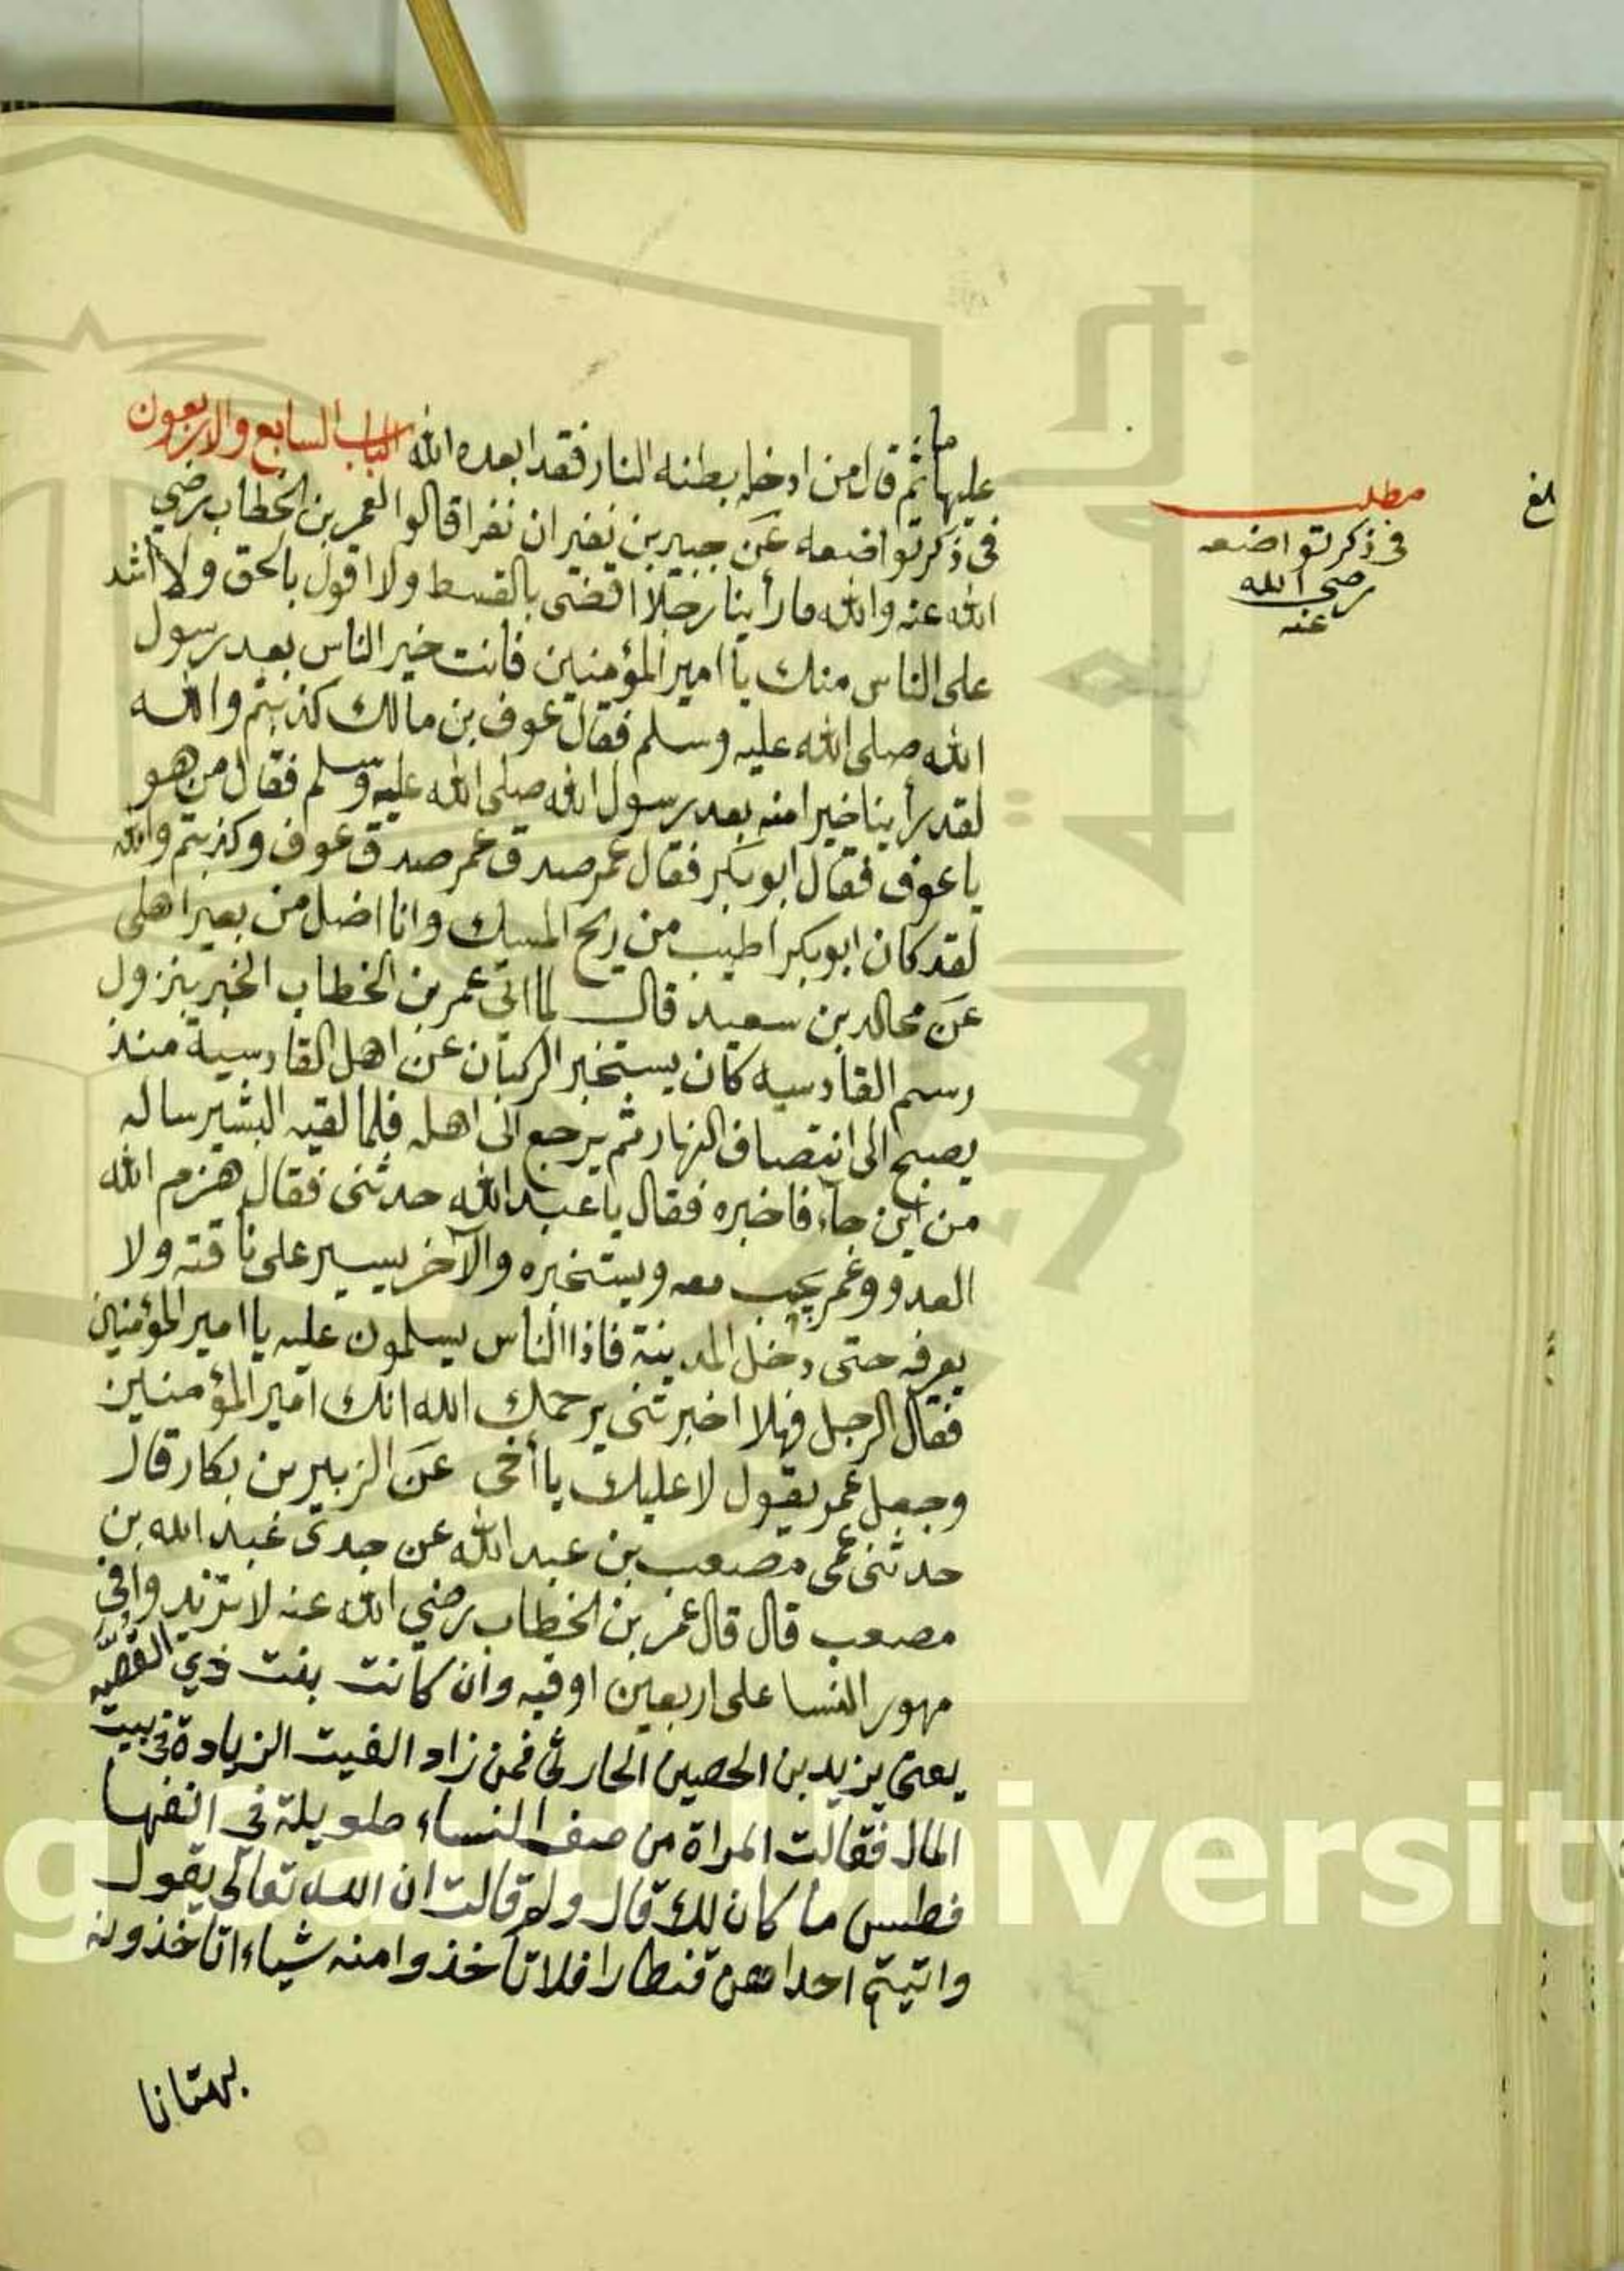 عليها ما ثم قال من ادخله بطنه النار فقد ابعده الله الباب السابع والاربعون
في ذكر تواضعه عن جبير بن نفير ان نفرا قالوا لعمر بن الخطاب رضي
الله عنه والله ما رأينا رجلا اقضى بالقسط ولا اقول بالحق ولا اشد
على الناس منك يا امير المؤمنين فانت خير الناس بعد رسول
الله صلى الله عليه وسلم فقال عوف بن مالك كذبتم والله
لقد رأينا خيرا منه بعد رسول الله صلى الله عليه وسلم فقال من هو
يا عوف فقال ابو بكر فقال عمر صدق عمر صدق عوف وكذبتم والله
لقد كان ابو بكر اطيب من ريح المسك وانا اضل من بعير اهلى
عن مجالد بن سعيد قال لما اتى عمر بن الخطاب الخبر بنزول
رسم القادسيه كان يستخبر الركبان عن اهل القادسية منذ
يصبح الى انتصاف النهار ثم يرجع الى اهله فلما لقيه البشير ساله
من اين جاء فاخبره فقال يا عبد الله حدثنى فقال هزم الله
العدو وعمر يجب معه ويستخبره والآخر يسير على ناقته ولا
يعرفه حتى دخل المدينة فاذا الناس يسلمون عليه يا امير المؤمنين
فقال الرجل فهلا اخبرتنى يرحمك الله انك امير المؤمنين
وجعل عمر يقول لا عليك يا أخى عن الزبير بن بكار قال
حدثنى عمى مصعب بن عبد الله عن جدى عبد الله بن
مصعب قال قال عمر بن الخطاب رضي الله عنه لا تزيدوا في
مهور النسا على اربعين اوقيه وان كانت بنت ذي القصّه
يعنى يزيد بن الحصين الحارثى فمن زاد القيت الزيادة فى بيت
المال فقالت المراة من صف النساء طويلة فى انفها
فطس ما كان لك قال ولم قالت ان الله تعالى يقول
واتيتم احداهن قنطارا فلا تأخذوا منه شياء اتاخذونه
بهتانا
مطلب
فى ذكر تواضعه
رضي الله
عنه
بلغ